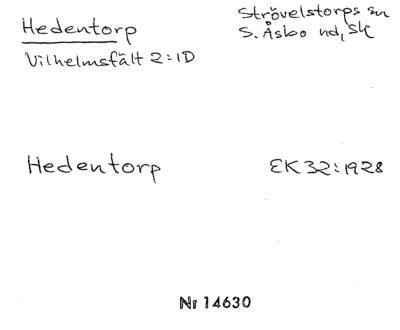 Hedentorp
Strövelstorps sn
Vilhelmsfält 2:1D
S. Åsbo hd, Sk
Hedentorp
EK 32:1928
Nr 14630